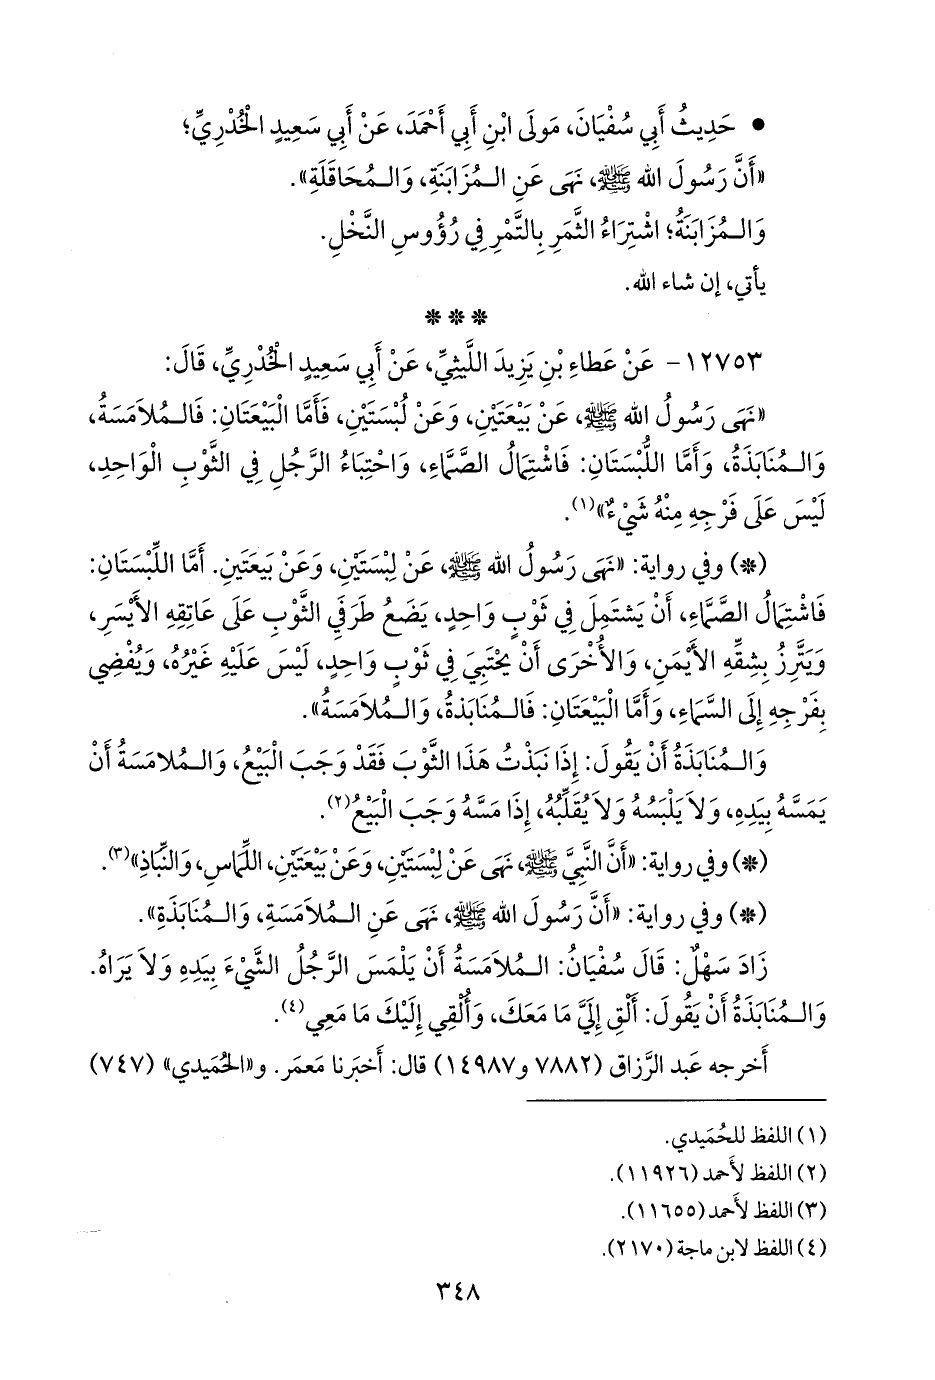 • حَدِيثُ أَبِي سُفْيَانَ، مَولَى ابْنِ أَبِي أَحْمَدَ، عَنْ أَبِي سَعِيدٍ الْخُدْرِيِّ؛
«أَنَّ رَسُولَ الله ﷺ، نَهَى عَنِ الْمُزَابَنَةِ، وَالْمُحَاقَلَةِ».
وَالْمُزَابَنَةُ؛ اشْتِرَاءُ الثَّمَرِ بِالتَّمْرِ فِي رُؤُوسِ النَّخْلِ.
يأتي، إن شاء الله.
* * *
١٢٧٥٣ - عَنْ عَطَاءِ بْنِ يَزِيدَ اللَّيْثِيِّ، عَنْ أَبِي سَعِيدٍ الْخُدْرِيِّ، قَالَ:
«نَهَى رَسُولُ الله ﷺ، عَنْ بَيْعَتَيْنِ، وَعَنْ لُبْسَتَيْنِ، فَأَمَّا الْبَيْعَتَانِ: فَالْمُلاَمَسَةُ،
وَالْمُنَابَذَةُ، وَأَمَّا اللُّبْسَتَانِ: فَاشْتِمَالُ الصَّمَّاءِ، وَاحْتِبَاءُ الرَّجُلِ فِي الثَّوْبِ الْوَاحِدِ،
لَيْسَ عَلَى فَرْجِهِ مِنْهُ شَيْءٌ»(١).
(*) وفي رواية: «نَهَى رَسُولُ الله ﷺ، عَنْ لِبْسَتَيْنِ، وَعَنْ بَيعَتَينِ. أَمَّا اللِّبْسَتَانِ:
فَاشْتِمَالُ الصَّمَّاءِ، أَنْ يَشتَمِلَ فِي ثَوْبٍ وَاحِدٍ، يَضَعُ طَرَفَيِ الثَّوْبِ عَلَى عَاتِقِهِ الأَيْسَرِ،
وَيَتَّزِرُ بِشِقِّهِ الأَيْمَنِ، وَالأُخْرَى أَنْ يَحْتَبِيَ فِي ثَوْبٍ وَاحِدٍ، لَيْسَ عَلَيْهِ غَيْرُهُ، وَيُفْضِي
بِفَرْجِهِ إِلَى السَّمَاءِ، وَأَمَّا الْبَيْعَتَانِ: فَالْمُنَابَذةُ، وَالْمُلاَمَسَةُ».
وَالْمُنَابَذَةُ أَنْ يَقُولَ: إِذَا نَبَذْتُ هَذَا الثَّوْبَ فَقَدْ وَجَبَ الْبَيْعُ، وَالْمُلاَمَسَةُ أَنْ
يَمَسَّهُ بِيَدِهِ، وَلاَ يَلْبَسُهُ وَلاَ يُقَلِّبُهُ، إِذَا مَسَّهُ وَجَبَ الْبَيْعُ(٢).
(*) وفي رواية: «أَنَّ النَّبِيَّ ﷺ، نَهَى عَنْ لِبْسَتَيْنِ، وَعَنْ بَيْعَتَيْنِ، اللِّمَاسِ، وَالنِّبَاذِ»(٣).
(*) وفي رواية: «أَنَّ رَسُولَ الله ﷺ، نَهَى عَنِ الْمُلاَمَسَةِ، وَالْمُنَابَذَةِ».
زَادَ سَهْلٌ: قَالَ سُفْيَانُ: الْمُلاَمَسَةُ أَنْ يَلْمَسَ الرَّجُلُ الشَّيْءَ بِيَدِهِ وَلاَ يَرَاهُ.
وَالْمُنَابَذَةُ أَنْ يَقُولَ: أَلْقِ إِلَيَّ مَا مَعَكَ، وَأُلْقِي إِلَيْكَ مَا مَعِي(٤).
أَخرجه عَبد الرَّزاق (٧٨٨٢ و١٤٩٨٧) قال: أَخبَرنا مَعمَر. و«الحُمَيدي» (٧٤٧)
(١) اللفظ للحُمَيدي.
(٢) اللفظ لأَحمد (١١٩٢٦).
(٣) اللفظ لأَحمد (١١٦٥٥).
(٤) اللفظ لابن ماجة (٢١٧٠).
٣٤٨